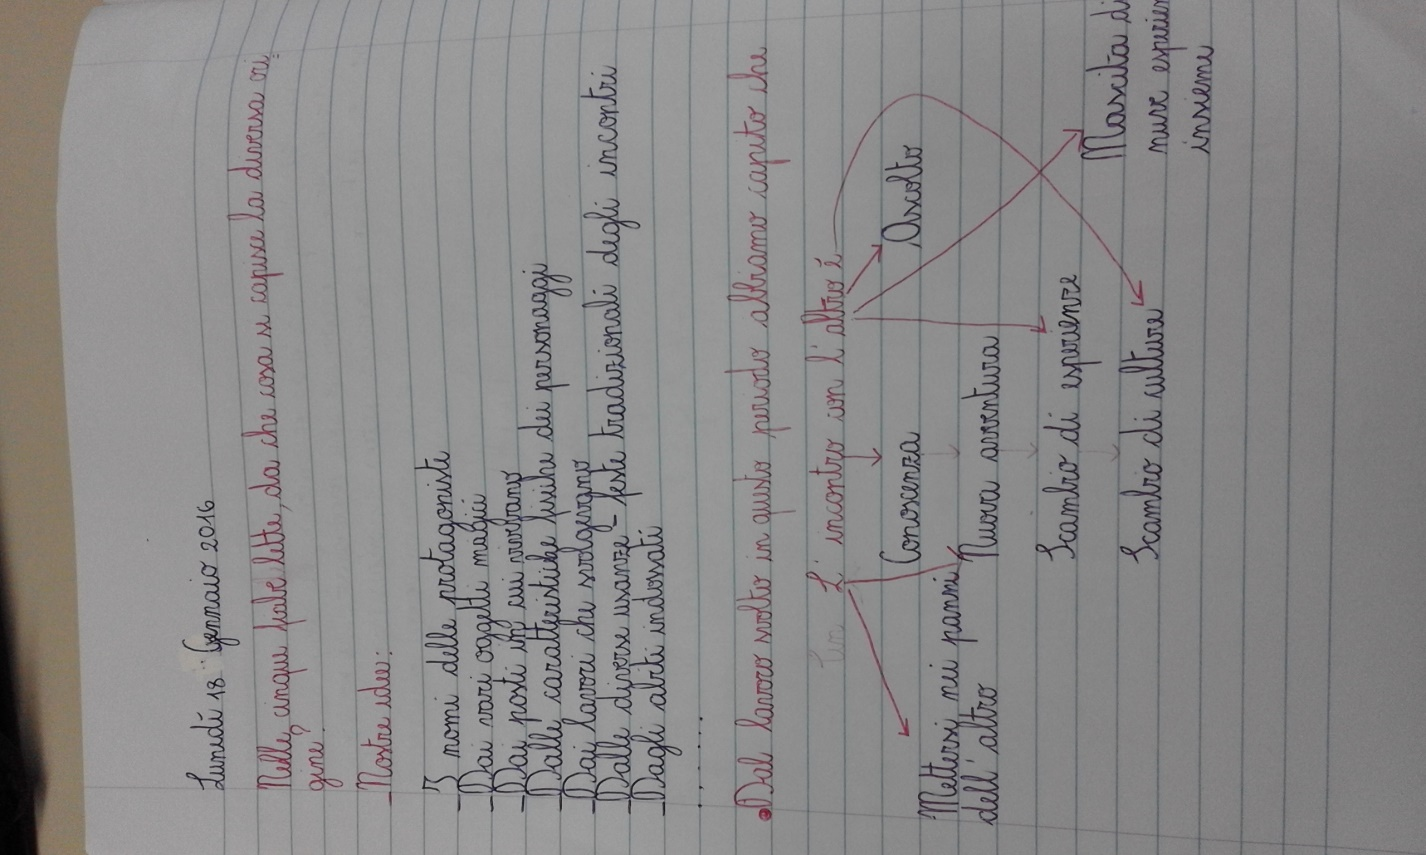 Lunedì 18 Gennaio 2016
Nelle cinque fiabe lette, da che cosa si capisce la diversa ori=
gine?
-Nostre idee:
-I nomi delle protagoniste
-Dai vari oggetti magici
-Dai posti in cui vivevano
-Dalle caratteristiche fisiche dei personaggi
-Dai lavori che svolgevano
-Dalle diverse usanze - feste tradizionali degli incontri
-Dagli abiti indossati
.....
•Dal lavoro svolto in questo periodo abbiamo capito che
L'incontro con l'altro è
Conoscenza
Ascolto
Mettersi nei panni
dell'altro
Nuova avventura
Scambio di esperienze
Scambio di culture
Nascita di
nuove
insieme